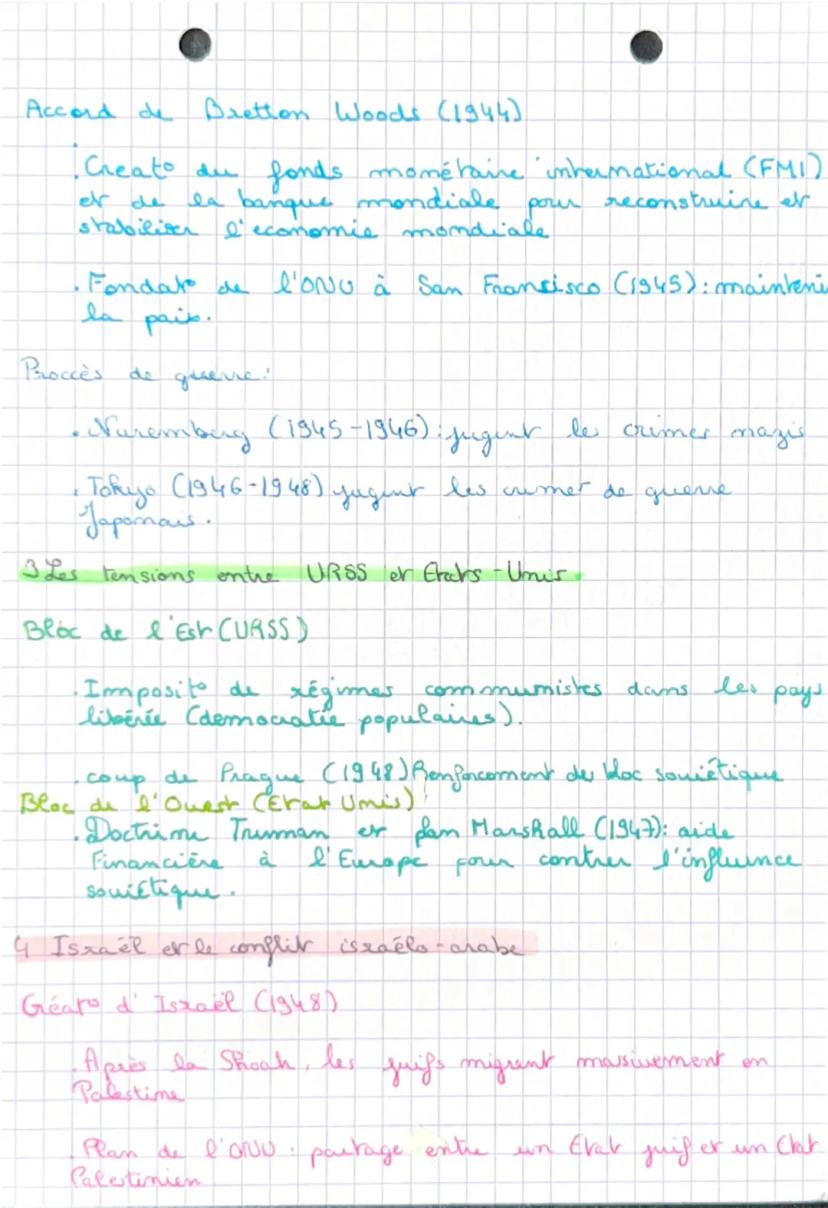 Accord de Bretton Woods (1944)
. Creato du fonds monétaire international (FMI)
et de la banque mondiale pour reconstruire et
stabiliser l'economie mondiale
. Fondato de l'ONU à San Francisco (1945): mainteni
la paix.
Proccès de guerre:
. Nuremberg (1945-1946): jugent le crimes nazis
. Tokyo (1946-1948) jugent les crimes de guerre
Japonais.
3 Les tensions entre URSS et Etats-Unis.
Bloc de l'Est (URSS)
. Imposito de régimes communistes dans les pays
libérée (democratie populaires).
. coup de Prague (1948) Renforcement du bloc soviétique
Bloc de l'Ouest (Etat Unis)
. Doctrine Truman et plan Marshall (1947): aide
Financière à l'Europe pour contrer l'influence
soviétique.
4 Israël et le conflit israélo-arabe
Créato d'Israël (1948)
. Après la Shoah, les juifs migrent massivement en
Palestine
. Plan de l'ONU: partage entre un Etat juif et un Etat
Palestinien